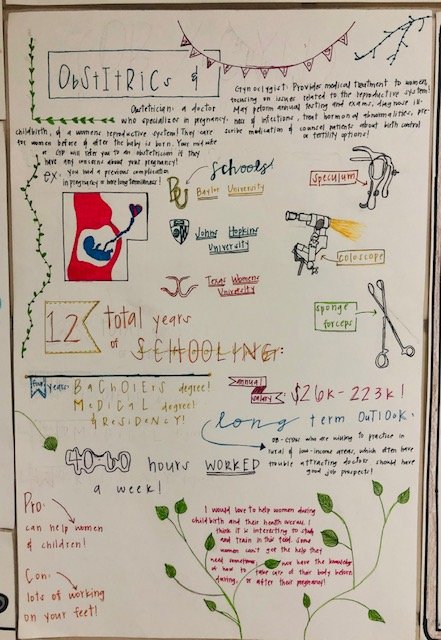 ObStItRiCs &
Obstetrician: a doctor
who specializes in pregnancy,
childbirth, & a womens reproductive system! They care
for women before & after the baby is born. Your midwife
or GP will refer you to an obstetrician if they
have any concerns about your pregnancy!
ex: you had a previous complication
in pregnancy or have long term illness!
Gynocolygist: Provides medical treatment to women,
focusing on issues related to the reproductive system!
They perform annual testing and exams, diagnose ill-
ness & infections, treat hormonal abnormalities, pre-
scribe medication & counsel patients about birth control
or fertility options!
schools!
BU
Baylor University
Johns Hopkins
University
Texas Womens
University
speculum
coloscope
sponge
forceps
12 total years
of SCHOOLING:
four years: BaCHOlERs degree!
MeDiCaL degree!
& ResiDENCY!
annual
salary: $26k - 223k!
long term OuTlOOk:
OB-GYNs who are willing to practice in
rural & low-income areas, which often have
trouble attracting doctors should have
good job prospects!
40-60 hours WORKED
a week!
Pro:
can help women
& children!
Con:
lots of working
on your feet!
I would love to help women during
childbirth and their health overall. I
think it is interesting to study
and train in this field. Some
women don't get the help they
need sometimes, nor have the knowledge
of how to take care of their body before,
during, or after their pregnancy!